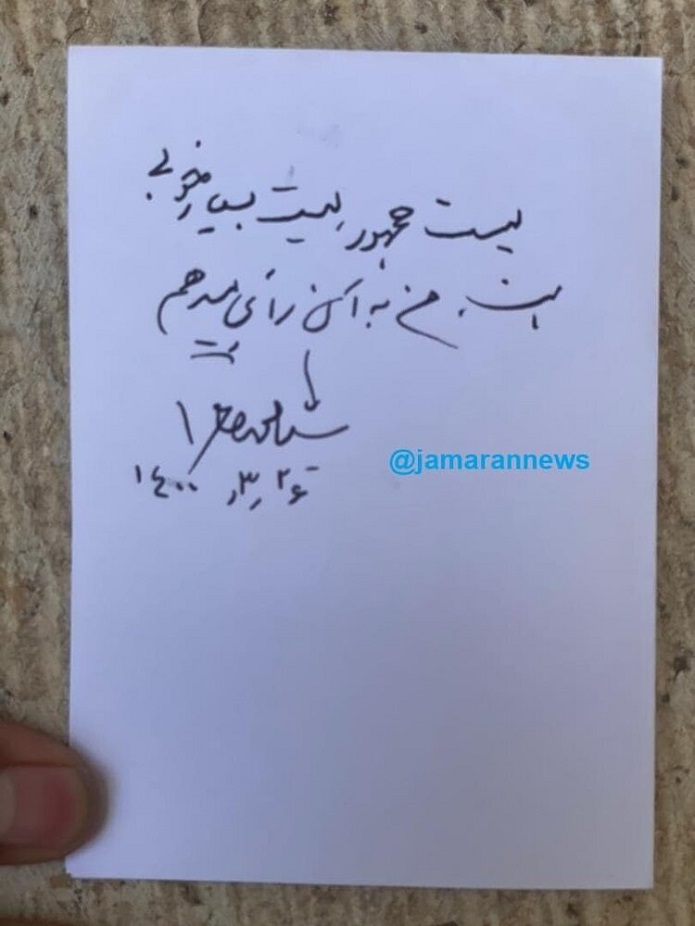 لیست جمهور لیست بسیار خوبی
است. من به آن رأی میدهم
۱۴۰۰ ،۳، ۲۶
@jamarannews